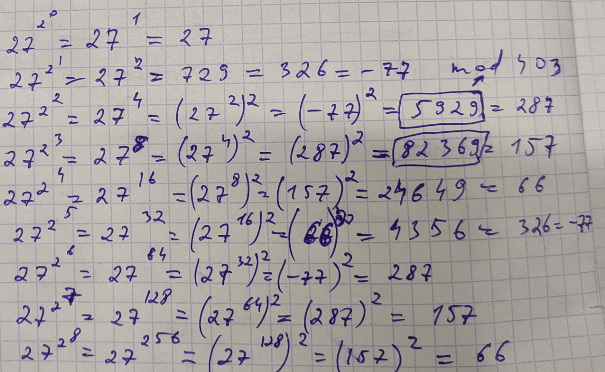 27^{2^0} = 27^1 = 27
27^{2^1} = 27^2 = 729 = 326 = -77 mod 403
27^{2^2} = 27^4 = (27^2)^2 = (-77)^2 = 5929 = 287
27^{2^3} = 27^8 = (27^4)^2 = (287)^2 = 82369 = 157
27^{2^4} = 27^{16} = (27^8)^2 = (157)^2 = 24649 = 66
27^{2^5} = 27^{32} = (27^{16})^2 = (66)^2 = 4356 = 326 = -77
27^{2^6} = 27^{64} = (27^{32})^2 = (-77)^2 = 287
27^{2^7} = 27^{128} = (27^{64})^2 = (287)^2 = 157
27^{2^8} = 27^{256} = (27^{128})^2 = (157)^2 = 66